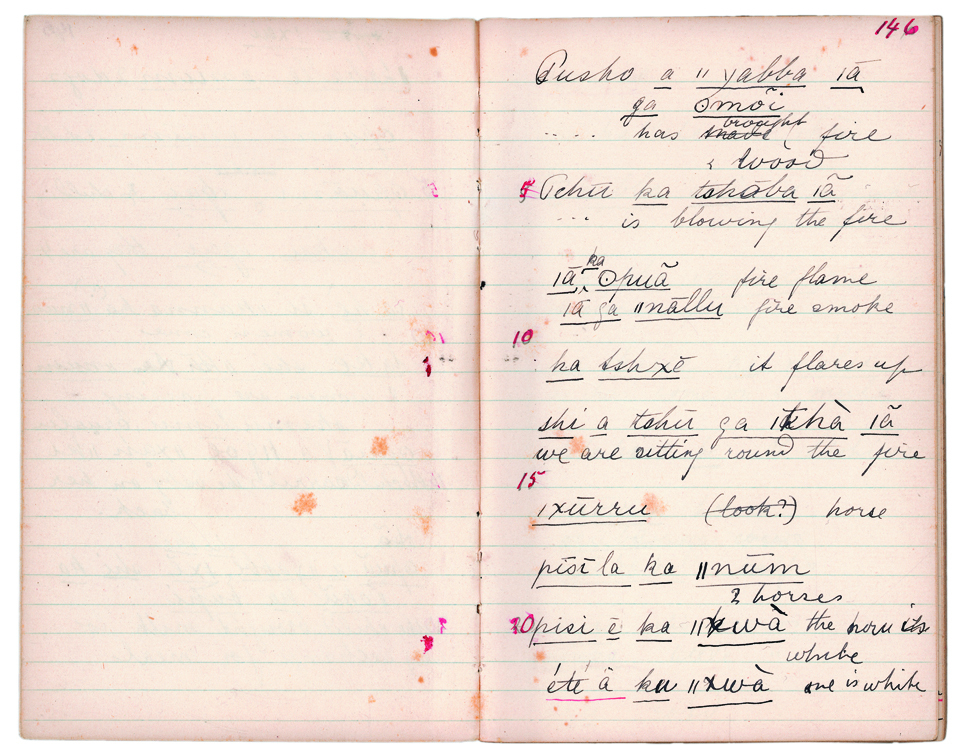 146
Tusho a ǁyabba ıã
ga ʘmõi
.... has brought fire
wood
5 Tchū ka tshāba ıã
... is blowing the fire
ıã ka ʘpuã fire flame
ıã ga ǁnāllu fire smoke
10
ka tshxē it flares up
shi a tshū ga ıkhà ıã
we are sitting round the fire
15
ıxūrru (look?) horse
pīsī la ka ǁnūm
2 horses
20 pisi ē ka ǁxwà the horn its
white
été ā ka ǁxwà one is white